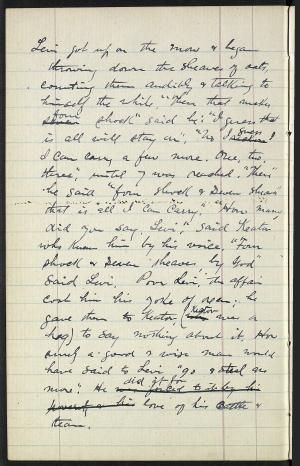 Levi got up on the mow & began
throwing down the sheaves of oats,
counting them audibly & talking to
himself the while, "Then that makes
four
seven shock" said he; "I guess that
is all will stay on", "No I guess
I can carry a few more. One, two,
three," until 7 was reached. "Then"
he said "four shock & seven sheaves
that is all I can carry," "How many
did you say, Levi," said Keator
who knew him by his voice, "Four
shock & seven sheaves by God"
said Levi. Poor Levi, the affair
cost him his yoke of oxen; he
gave them to Keator, (Keator was a
hog) to say nothing about it. How
much a good & wise man would
have said to Levi "go & steal no
more". He did it for
was forced to it by his
love of his cattle &
team.